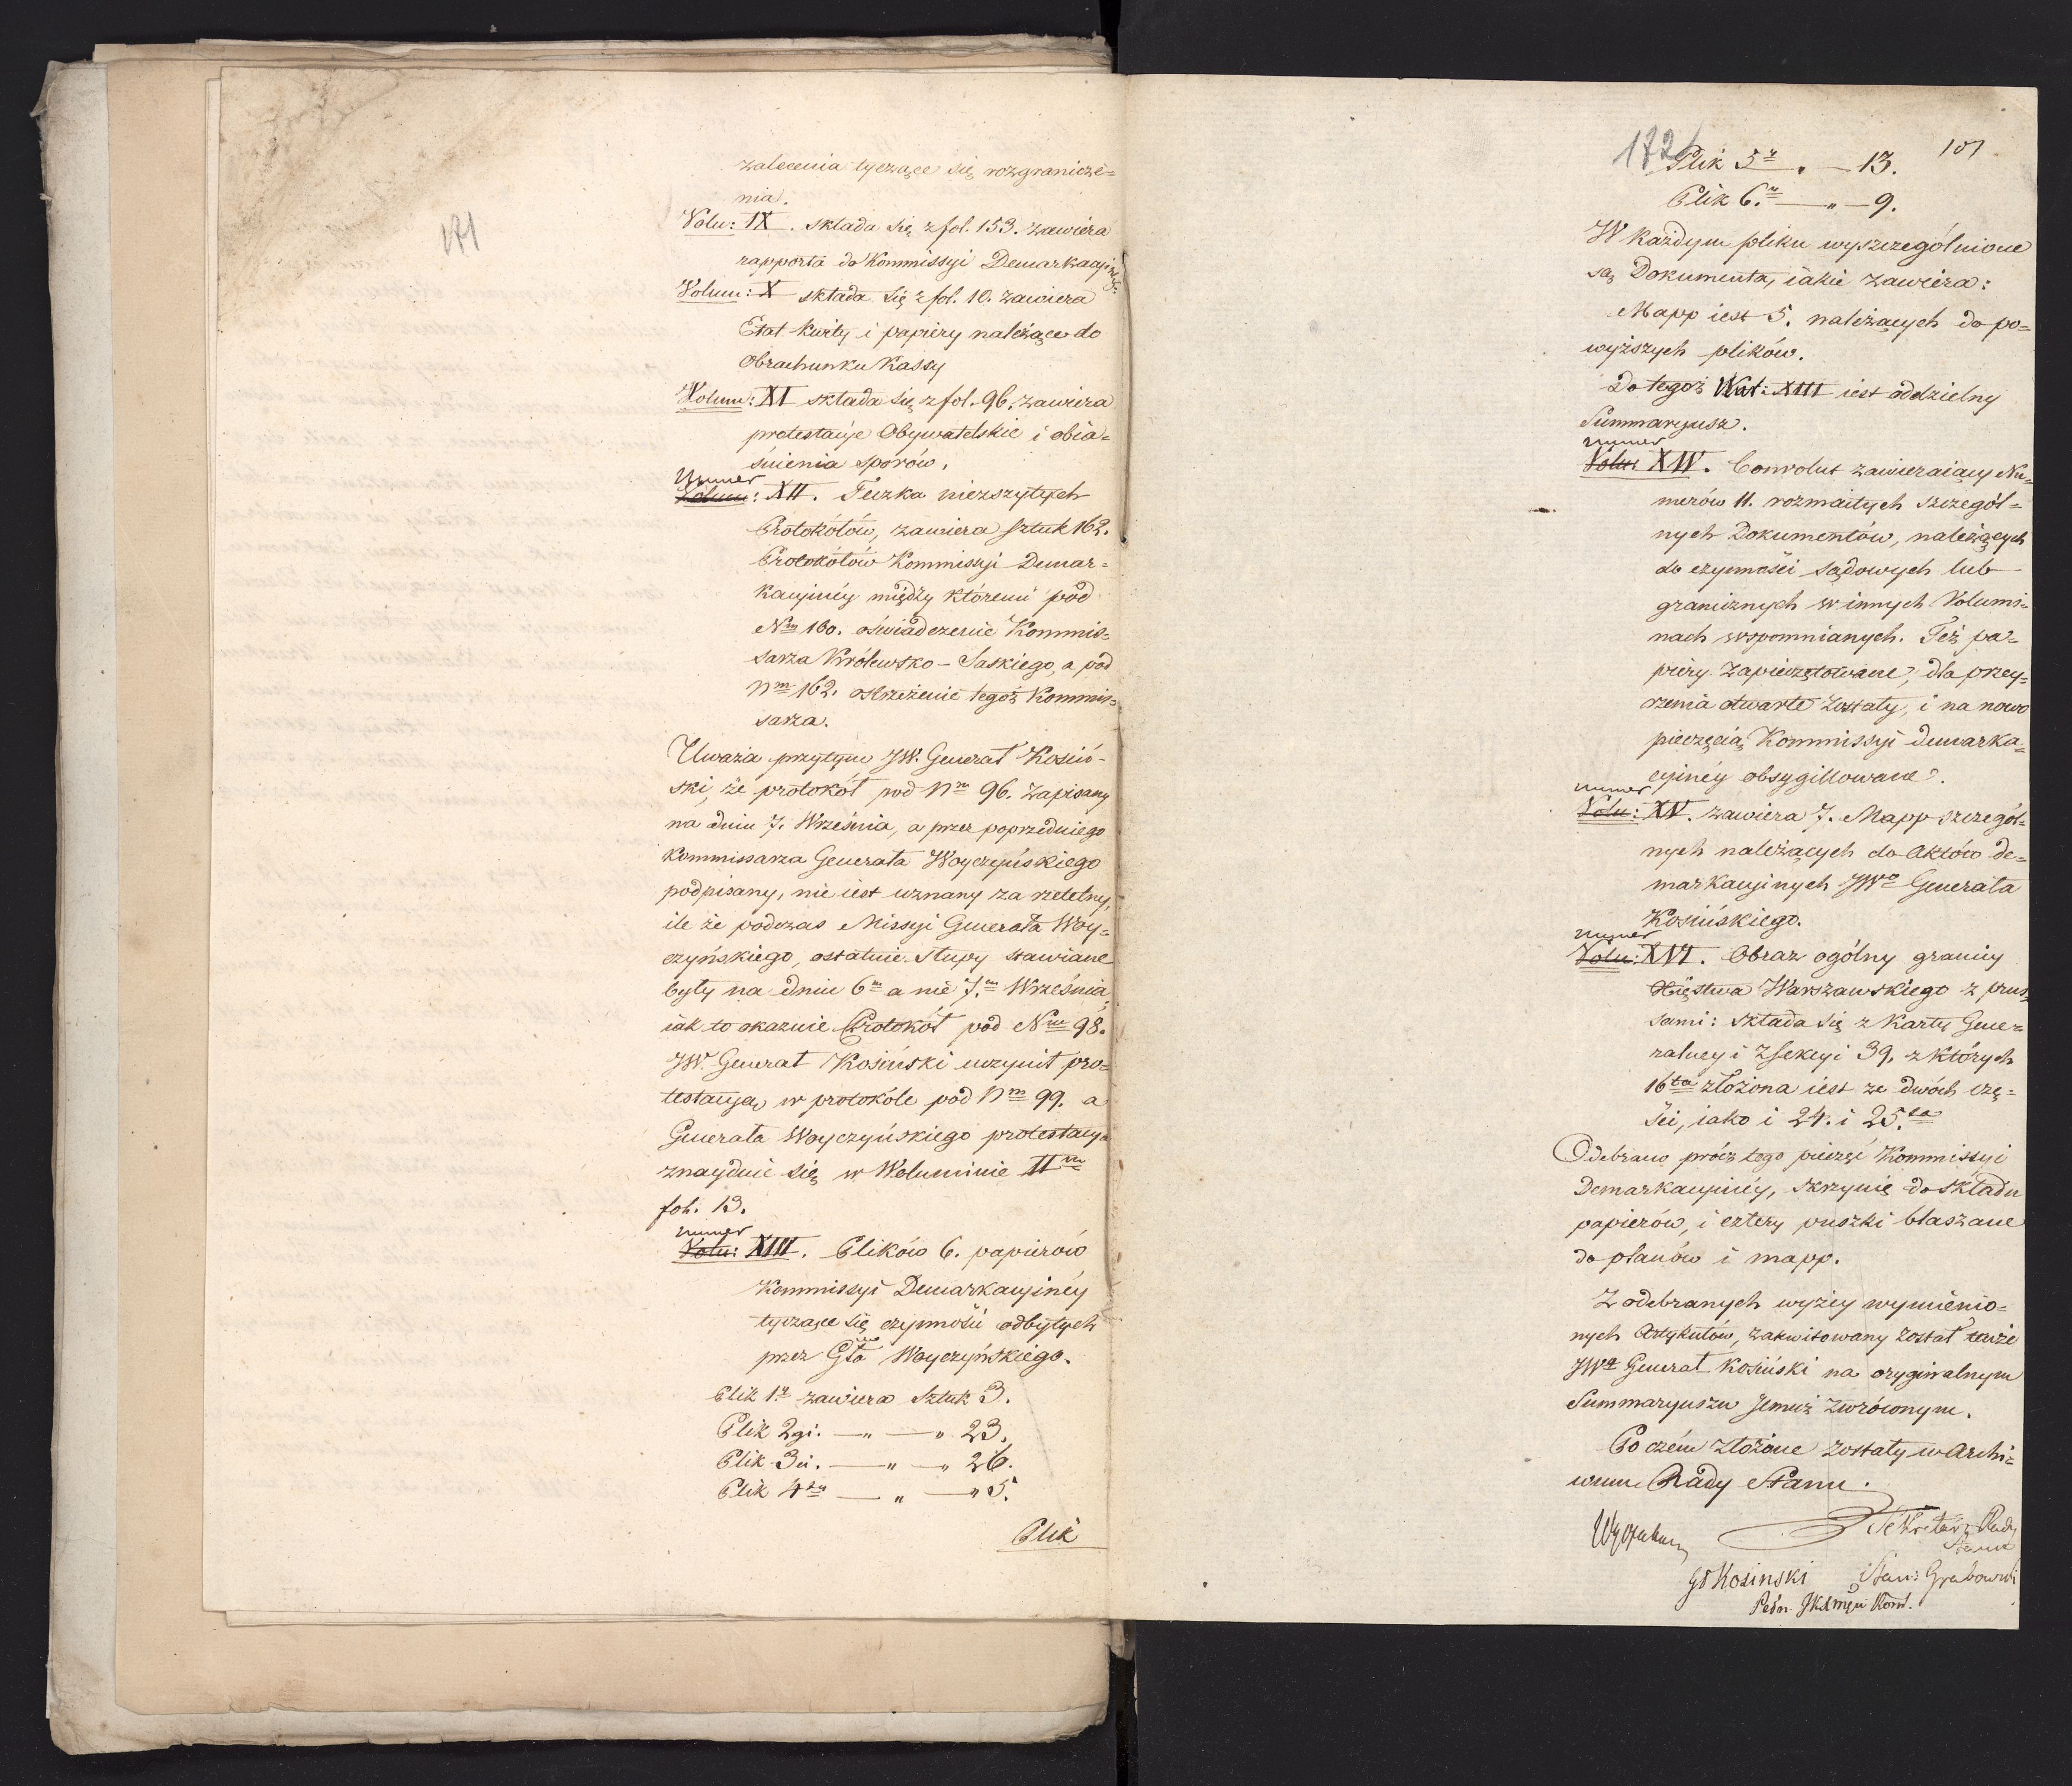 171
zalecenia tyczące się rozgranicze=
nia.
Volu: IX. składa się z fol. 153. zawiera
rapporta do Kommissyi Demarkacyinéy.
Volum: X składa się z fol. 10. zawiera
Etat kwity i papiery należące do
Obrachunku Kassy
Volum: XI składa się z fol. 96. zawiera
protestacye Obywatelskie i obia=
śnienia sporów.
Numer
Volum: XII. Teczka niezszytych
Protokółów, zawiera sztuk 162.
Protokółów Kommissyi Demar=
kacyinéy między któremi pod
Nm 160. oświadczenie Kommis=
sarza Królewsko-Saskiego, a pod
Nm 162. ostrzeżenie tegoż Kommis=
sarza.
Uważa przytym JW. Generał Kosiń-
ski, że protokół pod Nm 96. zapisany
na dniu 7. Września, a przez poprzedniego
Kommissarza Generała Woyczyńskiego
podpisany, nie iest uznany za rzetelny,
ile że podczas Missyi Generała Woy=
czyńskiego, ostatnie słupy stawiane
były na dniu 6m a nie 7.m Września,
iak to okazuie Protokół pod Nm 98.
JW. Generał Kosiński uczynił pro=
testacyą w protokóle pod Nm 99. a
Generała Woyczyńskiego protestacya
znayduie się w Woluminie IIm
fol. 13.
Numer
Volu: XIII. Plików 6. papierów
Kommissyi Demarkacyinéy
tyczące się czynności odbytych
przez Gła Woyczyńskiego.
Plik 1y zawiera sztuk 3.
Plik 2gi. — " — " 23.
Plik 3ci. — " — " 26.
Plik 4ty — " — " 5.
Plik
172
107
Plik 5y " — 13.
Plik 6.y — " — 9.
W każdym pliku wyszczególnione
są Dokumenta, iakie zawiera:
Mapp iest 5. należących do po=
wyższych plików.
Do tegoż XIII iest oddzielny
Summaryusz.
Numer
Volu: XIV. Convolut zawieraiący Nu=
merów 11. rozmaitych szczegól=
nych Dokumentów, należących
do czynności sądowych lub
granicznych w innych Volumi=
nach wspomnianych. Też pa=
piery zapieczętowane, dla przey=
rzenia otwarte zostały, i na nowo
pieczęcią Kommissyi demarka=
cyinéy obsygillowane.
Numer
Volu: XV. zawiera 7. Mapp szczegól=
nych należących do Aktów de=
markacyinych JWo Generała
Kosińskiego.
Numer
Volu: XVI. Obraz ogólny granicy
Xięstwa Warszawskiego z prus=
sami: składa się z Karty Gene=
ralney i z sekcyi 39. z których
16ta złożona iest ze dwóch czę=
ści, iako i 24. i 25.ta
Odebrano prócz tego pieczęć Kommissyi
Demarkacyinéy, skrzynię do składu
papierów, i cztery puszki blaszane
do planów i mapp.
Z odebranych wyżéy wymienio=
nych Artykułów, zakwitowany został tenże
JWy Generał Kosiński na oryginalnym
Summaryuszu Jemuż zwróconym.
Po czém złożone zostały w Archi=
wum Rady Stanu.
Sekretarz Rady
Stanu
Gł Kosinski Stan: Grabowski